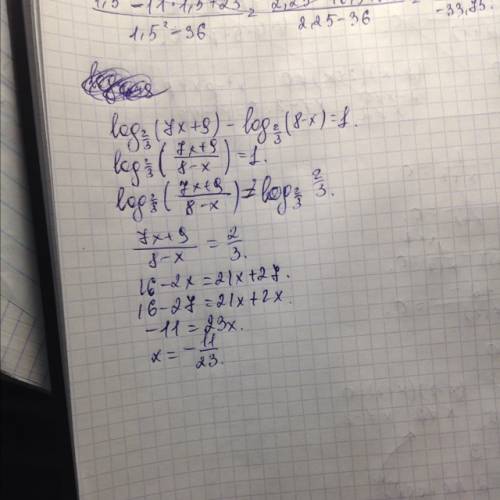 1,5² - 36
2,25 - 36
- 33,75.
log_{2/3} (7x+9) - log_{2/3} (8-x) = 1.
log_{2/3} ( (7x+9)/(8-x) ) = 1.
log_{2/3} ( (7x+9)/(8-x) ) = log_{2/3} 2/3.
(7x+9)/(8-x) = 2/3.
16 - 2x = 21x + 27.
16 - 27 = 21x + 2x.
-11 = 23x.
x = - 11/23.